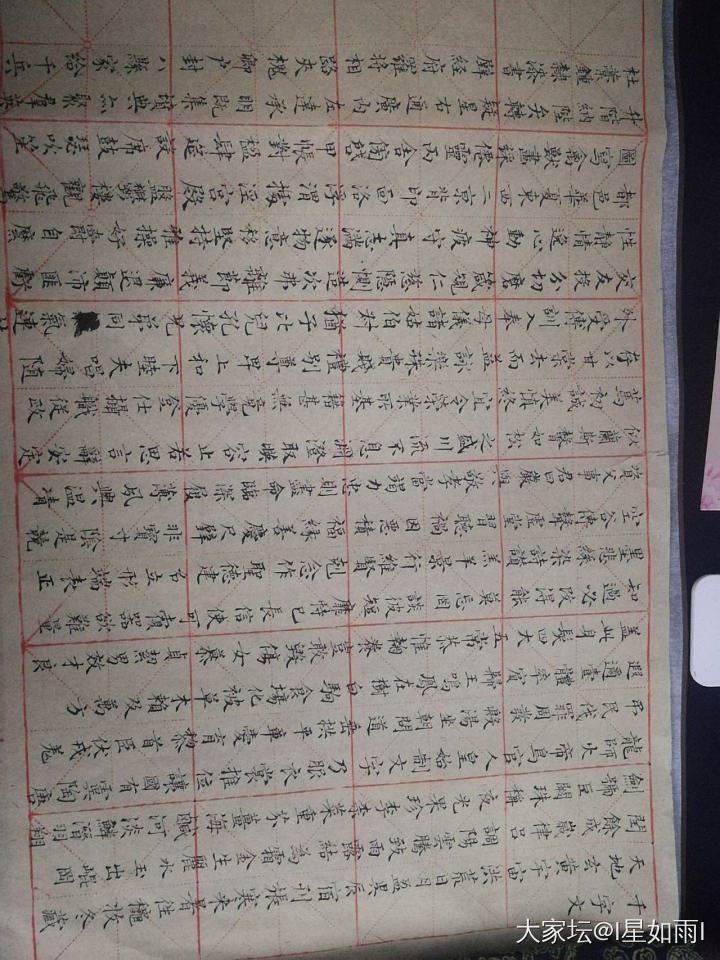 千字文
天地玄黃宇宙洪荒日月盈昃辰宿列張寒來暑往秋收冬藏
閏餘成歲律呂調陽雲騰致雨露結為霜金生麗水玉出崑岡
劍號巨闕珠稱夜光果珍李柰菜重芥薑海鹹河淡鱗潛羽翔
龍師火帝鳥官人皇始制文字乃服衣裳推位讓國有虞陶唐
弔民伐罪周發殷湯坐朝問道垂拱平章愛育黎首臣伏戎羌
遐邇壹體率賓歸王鳴鳳在樹白駒食場化被草木賴及萬方
蓋此身髮四大五常恭惟鞠養豈敢毀傷女慕貞絜男效才良
知過必改得能莫忘罔談彼短靡恃己長信使可覆器欲難量
墨悲絲染詩讚羔羊景行維賢克念作聖德建名立形端表正
空谷傳聲虛堂習聽禍因惡積福緣善慶尺璧非寶寸陰是競
資父事君曰嚴與敬孝當竭力忠則盡命臨深履薄夙興溫清
似蘭斯馨如松之盛川流不息淵澄取映容止若思言辭安定
篤初誠美慎終宜令榮業所基籍甚無竟學優登仕攝職從政
存以甘棠去而益詠樂殊貴賤禮別尊卑上和下睦夫唱婦隨
外受傅訓入奉母儀諸姑伯叔猶子比兒孔懷兄弟同氣連
交友投分切磨箴規仁慈隱惻造次弗離節義廉退顛沛匪虧
性靜情逸心動神疲守真志滿逐物意移堅持雅操好爵自縻
都邑華夏東西二京背邙面洛浮渭據涇宮殿盤鬱樓觀飛驚
圖寫禽獸畫綵僊靈丙舍傍啟甲帳對楹肆筵設席鼓瑟吹笙
升階納陛弁轉疑星右通廣內左達承明既集墳典亦聚羣英
杜稾鍾隸漆書壁經府羅將相路夾槐卿戶封八縣家給千兵
大家坛@I星如雨I